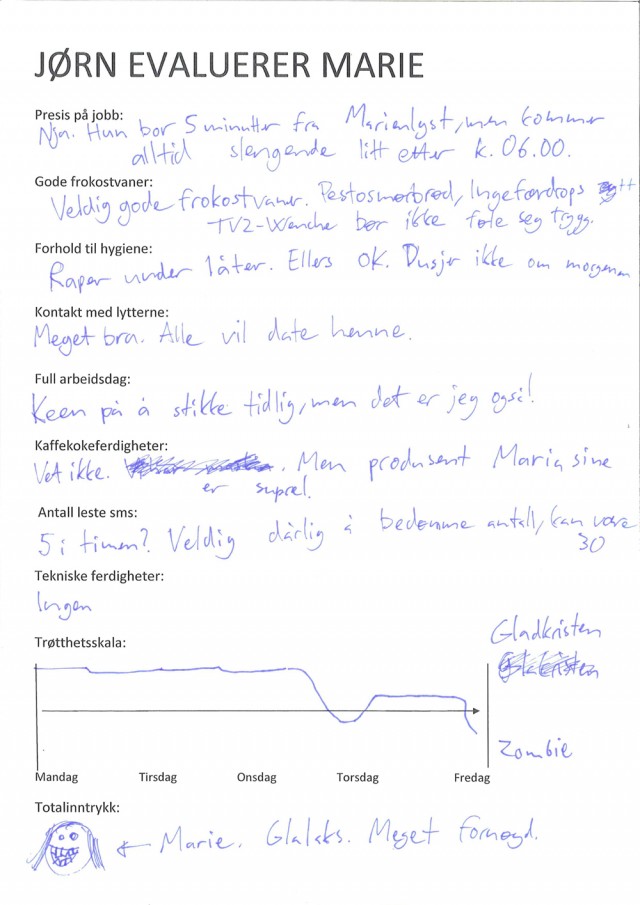 JØRN EVALUERER MARIE
Presis på jobb:
Nja. Hun bor 5 minutter fra Marienlyst, men kommer
alltid slengende litt etter k. 06.00.
Gode frokostvaner:
Veldig gode frokostvaner. Pestosmørbrød, Ingefærdrops ++
TV2-Wenche bør ikke føle seg trygg.
Forhold til hygiene:
Raper under låter. Ellers OK. Dusjer ikke om morgenen
Kontakt med lytterne:
Meget bra. Alle vil date henne.
Full arbeidsdag:
Keen på å stikke tidlig, men det er jeg også!
Kaffekokeferdigheter:
Vet ikke. . Men produsent Maria sine
er supre!.
Antall leste sms:
5 i timen? Veldig dårlig å bedømme antall, kan være
30
Tekniske ferdigheter:
Ingen
Trøtthetsskala:
Gladkristen
Zombie
Mandag Tirsdag Onsdag Torsdag Fredag
Totalinntrykk:
← Marie. Glalaks. Meget fornøyd.